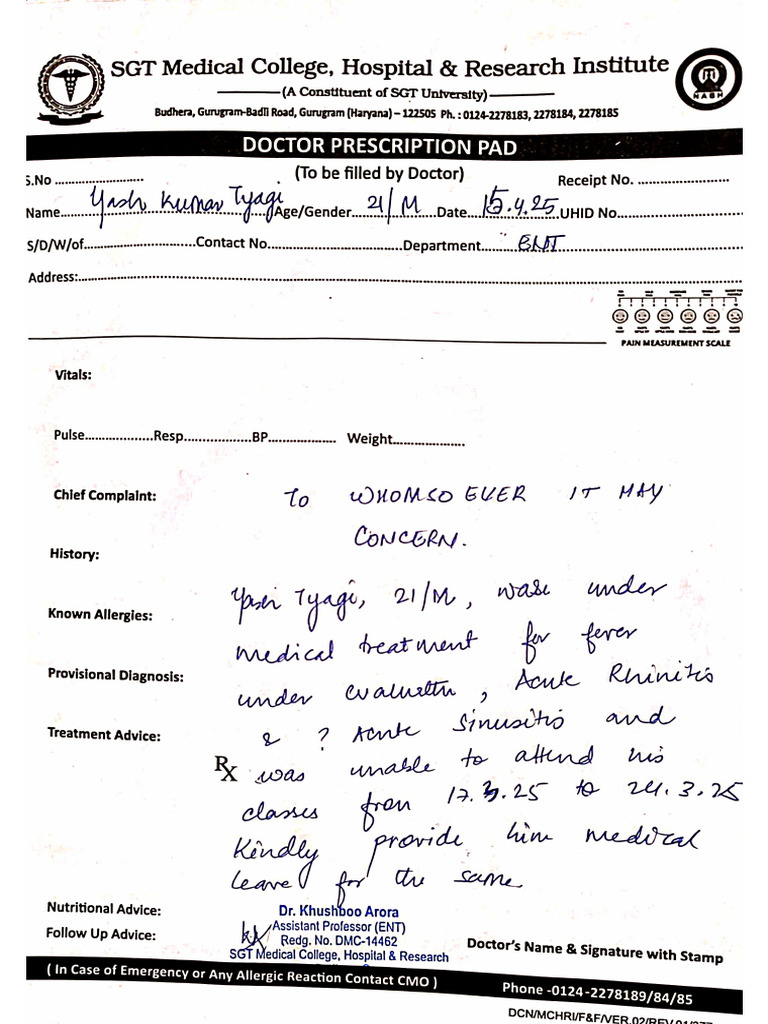 SGT Medical College, Hospital & Research Institute
(A Constituent of SGT University)
Budhera, Gurugram-Badli Road, Gurugram (Haryana) – 122505 Ph. : 0124-2278183, 2278184, 2278185
NABH
DOCTOR PRESCRIPTION PAD
(To be filled by Doctor)
S.No .......................... Receipt No. ..........................
Name Yash Kumar Tyagi Age/Gender 21/M Date 15.4.25 UHID No..........................
S/D/W/of.......................... Contact No.......................... Department ENT
Address:..........................
PAIN MEASUREMENT SCALE
Vitals:
Pulse...................Resp...................BP................... Weight...................
Chief Complaint: TO WHOMSOEVER IT MAY
CONCERN.
History:
Known Allergies: Yash Tyagi, 21/M, was under
medical treatment for fever
Provisional Diagnosis: under evaluation, Acute Rhinitis
Treatment Advice: & ? Acute Sinusitis and
Rx was unable to attend his
classes from 17.3.25 to 24.3.25
Kindly provide him medical
leave for the same
Nutritional Advice: Dr. Khushboo Arora
Assistant Professor (ENT)
Follow Up Advice: Redg. No. DMC-14462
SGT Medical College, Hospital & Research
Doctor's Name & Signature with Stamp
( In Case of Emergency or Any Allergic Reaction Contact CMO ) Phone -0124-2278189/84/85